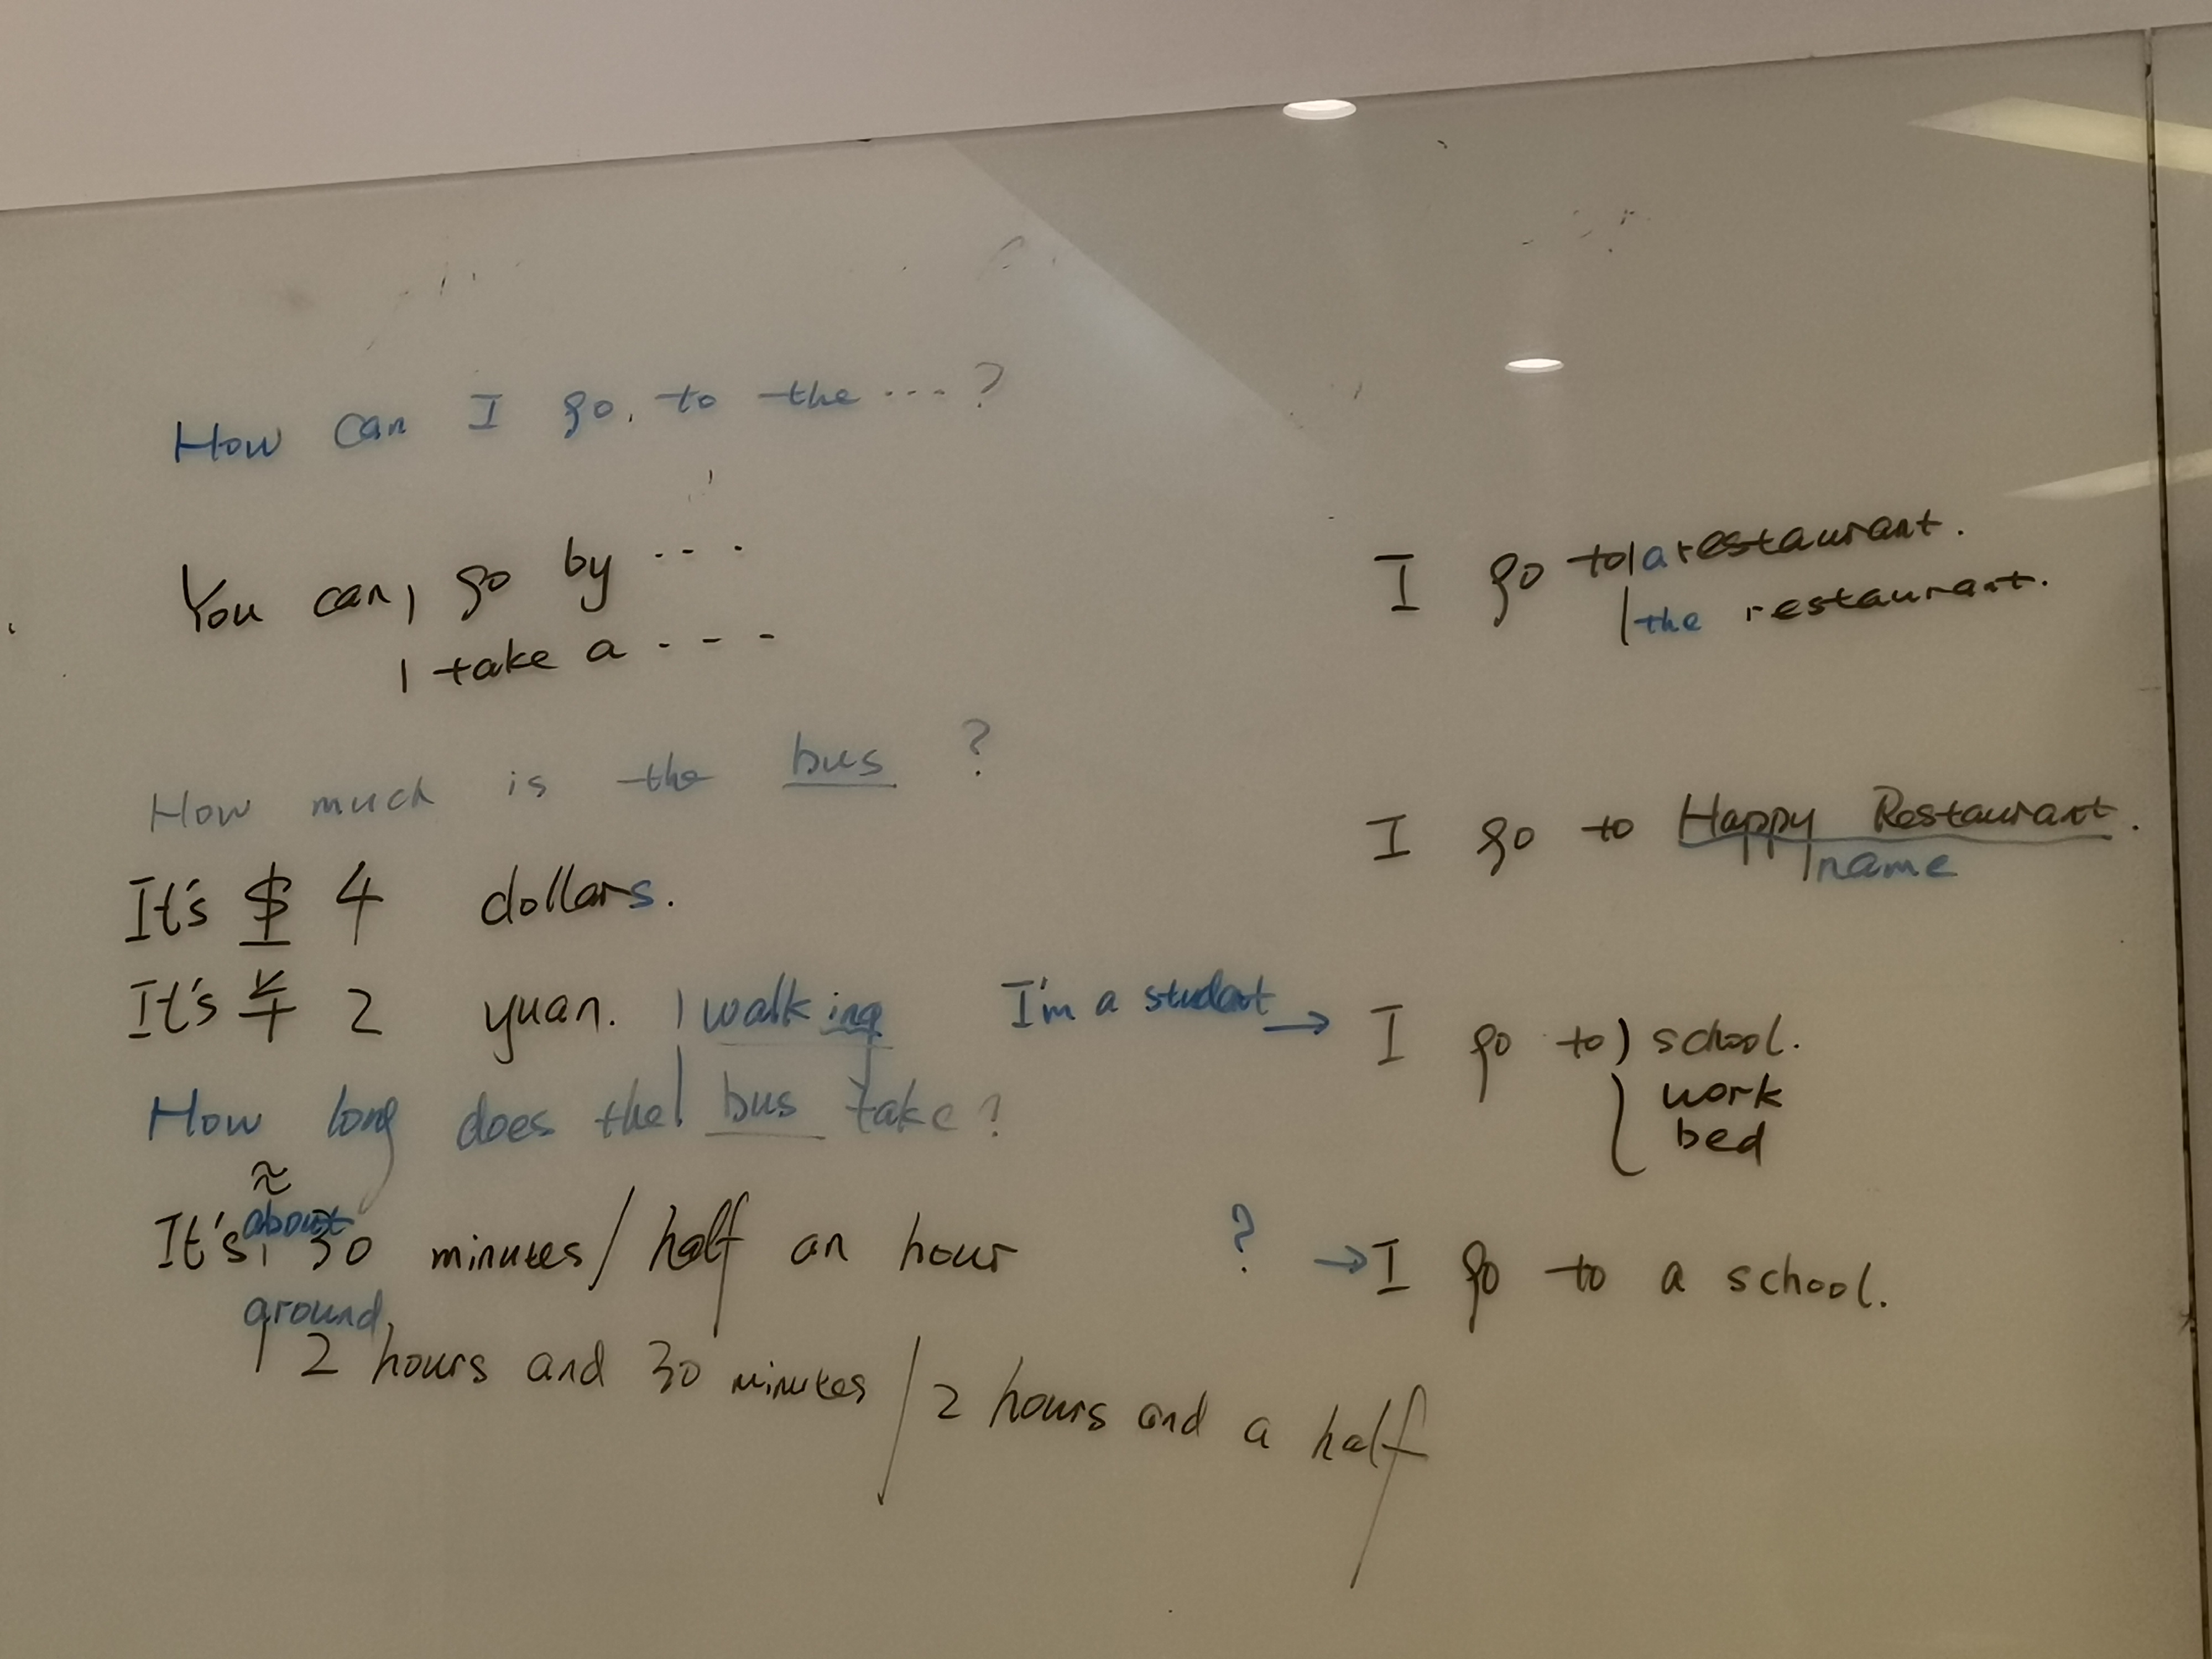 How can I go to the ...?
You can, go by ...
take a ...
How much is the bus ?
It's $ 4 dollars.
It's ¥ 2 yuan.
walking
How long does the bus take?
≈
about
It's 30 minutes / half an hour
around
2 hours and 30 minutes / 2 hours and a half
I go to a restaurant.
the restaurant.
I go to Happy Restaurant.
name
I'm a student → I go to school.
work
bed
? → I go to a school.